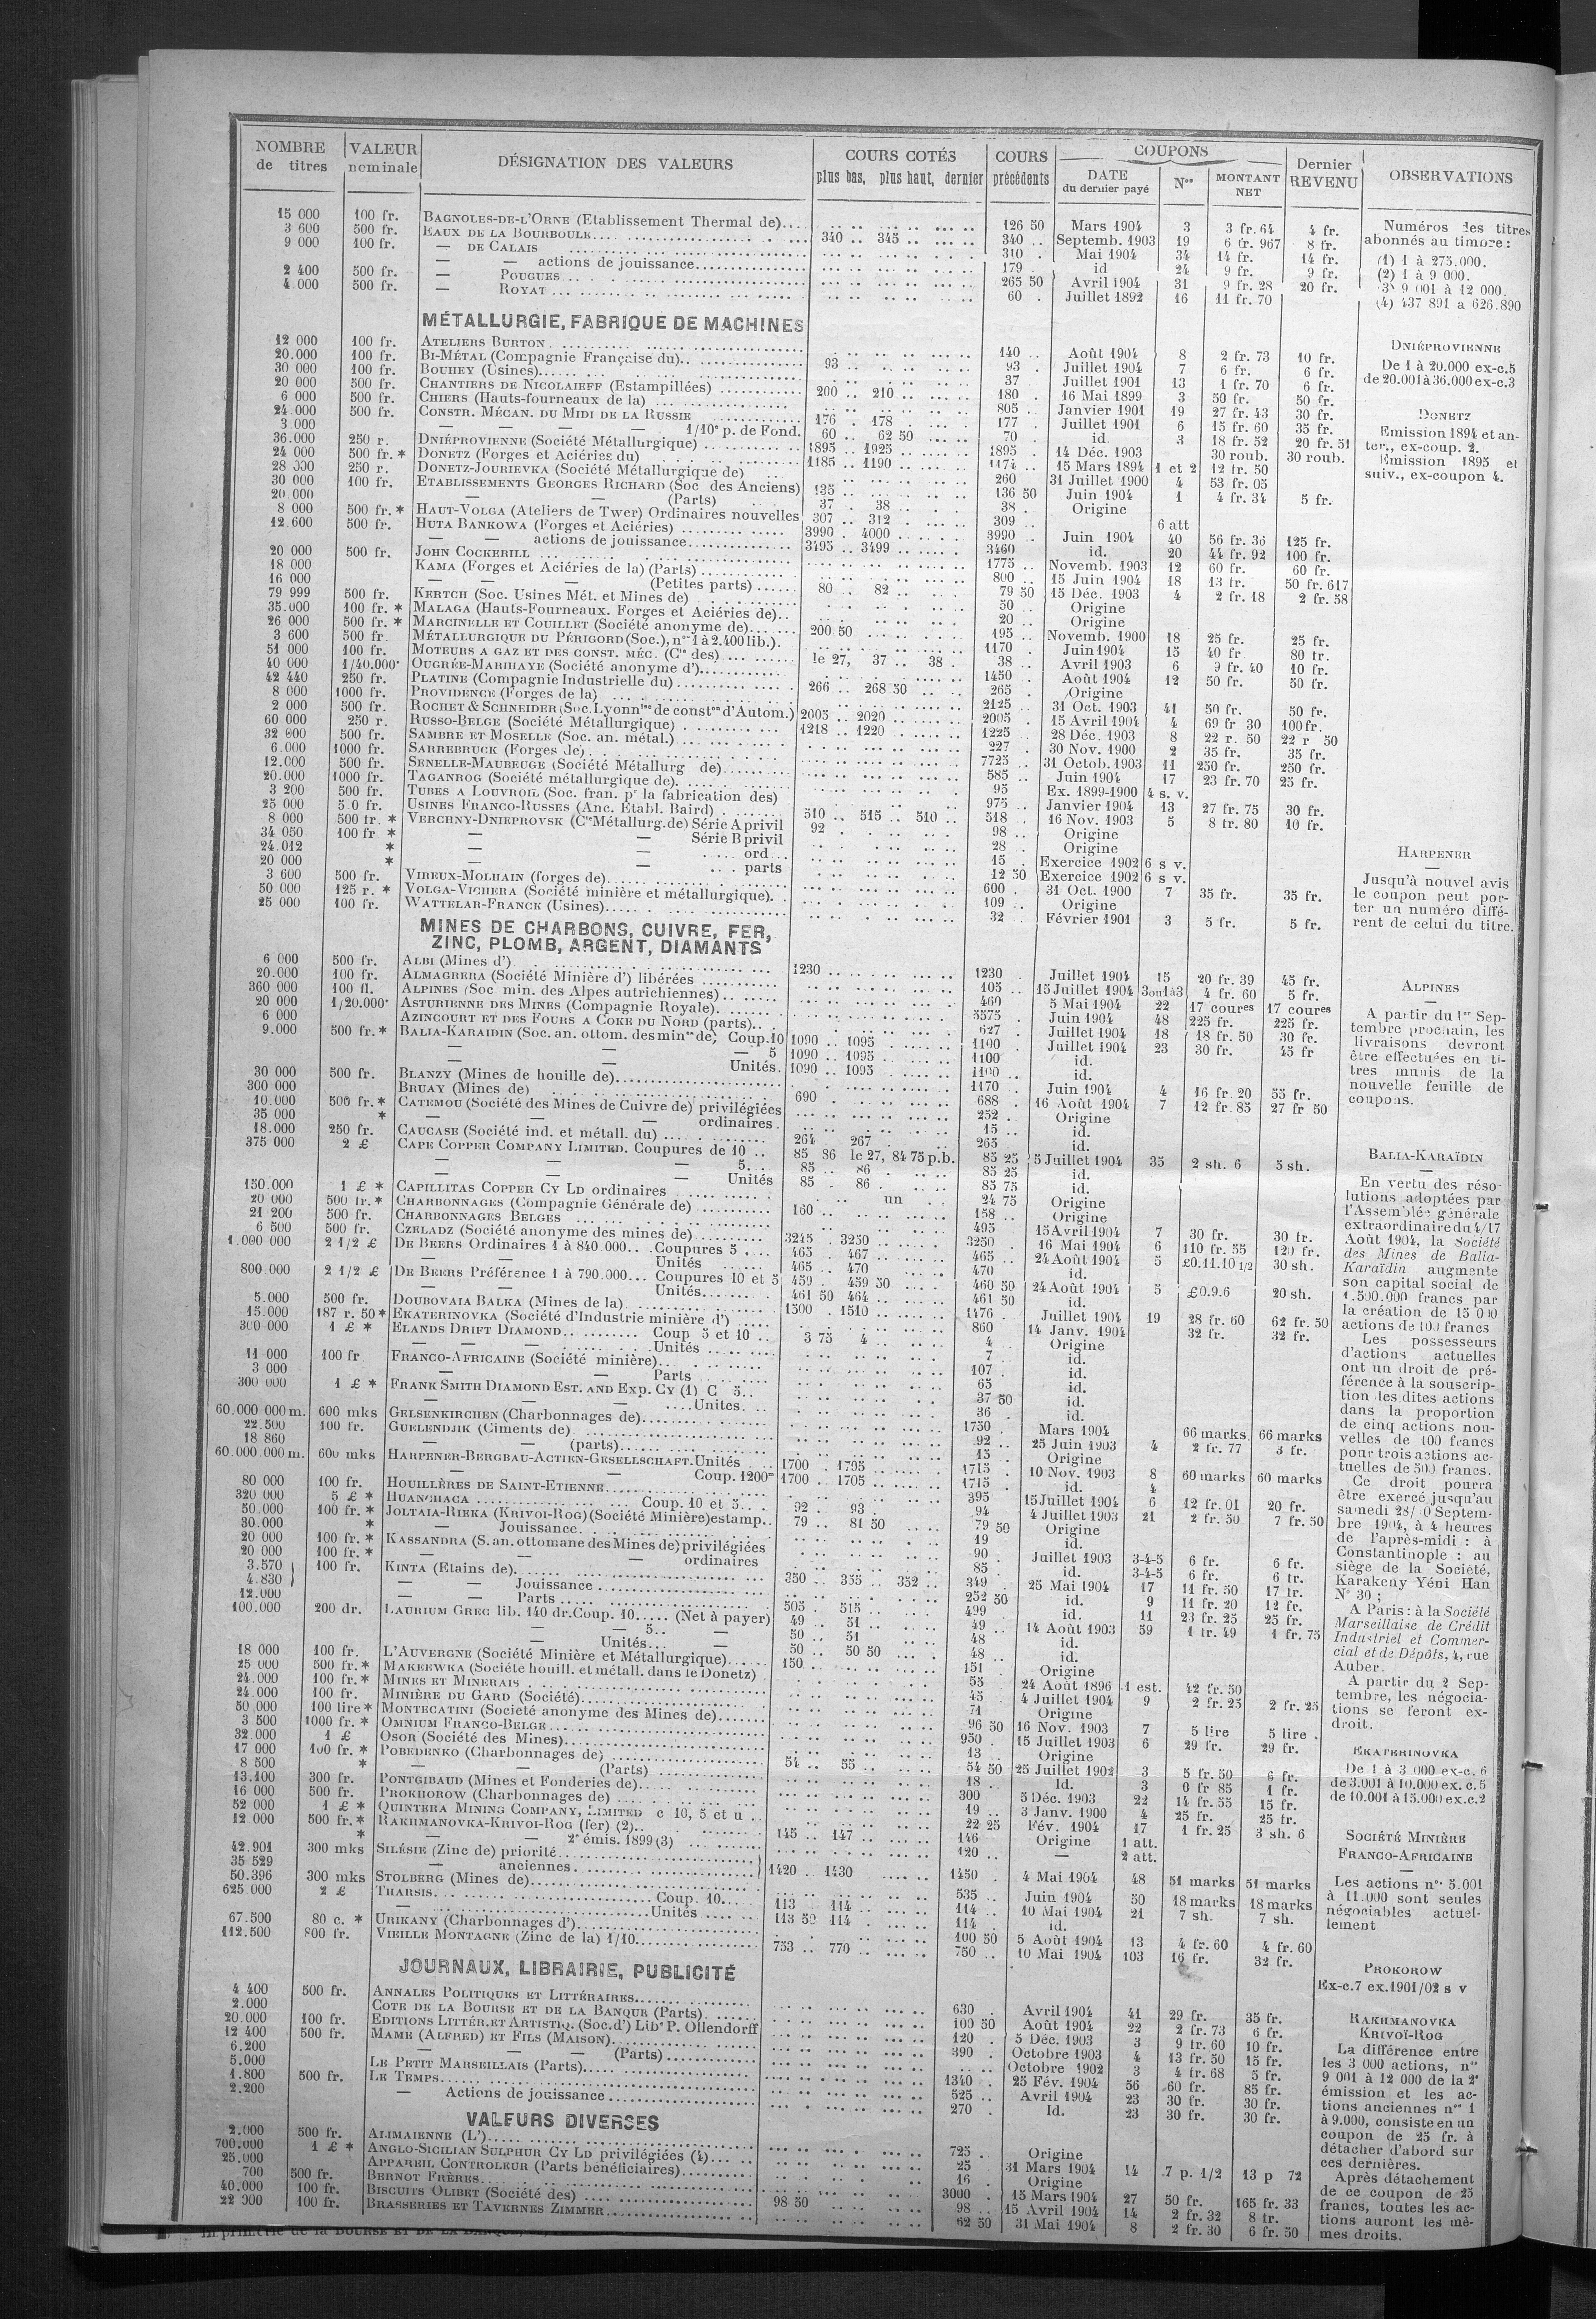 NOMBRE de titres | VALEUR nominale | DÉSIGNATION DES VALEURS | COURS COTÉS plus bas, plus haut, dernier | COURS précédents | COUPONS DATE du dernier payé | Nos | MONTANT NET | Dernier REVENU | OBSERVATIONS
15 000 100 fr. BAGNOLES-DE-L'ORNE (Etablissement Thermal de) 126 50 Mars 1904 3 3 fr. 64 4 fr.
3 600 500 fr. EAUX DE LA BOURBOULE 340 .. 345 .. 340 .. Septemb. 1903 19 6 fr. 967 8 fr.
9 000 100 fr. — DE CALAIS 310 . Mai 1904 34 14 fr. 14 fr.
— — actions de jouissance 179 id 24 9 fr. 9 fr.
2 400 500 fr. — POUGUES 265 50 Avril 1904 31 9 fr. 28 20 fr.
4.000 500 fr. — ROYAT 60 . Juillet 1892 16 11 fr. 70
MÉTALLURGIE, FABRIQUE DE MACHINES
12 000 100 fr. ATELIERS BURTON 140 .. Août 1904 8 2 fr. 73 10 fr.
20.000 100 fr. BI-MÉTAL (Compagnie Française du) 93 .. 93 . Juillet 1904 7 6 fr. 6 fr.
30 000 100 fr. BOUHEY (Usines) 37 Juillet 1901 13 1 fr. 70 6 fr.
20 000 500 fr. CHANTIERS DE NICOLAIEFF (Estampillées) 200 .. 210 .. 180 . 16 Mai 1899 3 50 fr. 50 fr.
6 000 500 fr. CHIERS (Hauts-fourneaux de la) 805 .. Janvier 1901 19 27 fr. 43 30 fr.
24.000 500 fr. CONSTR. MÉCAN. DU MIDI DE LA RUSSIE 176 . 178 . 177 . Juillet 1901 6 15 fr. 60 35 fr.
3.000 — — — — 1/10e p. de Fond. 60 .. 62 50 70 . id. 3 18 fr. 52 20 fr. 51
36.000 250 r. DNIÉPROVIENNE (Société Métallurgique) 1895 .. 1925 .. 1895 . 14 Déc. 1903 30 roub. 30 roub.
24 000 500 fr. * DONETZ (Forges et Aciéries du) 1185 .. 1190 .. 1174 .. 15 Mars 1894 1 et 2 12 fr. 50
28 000 250 r. DONETZ-JOURIEVKA (Société Métallurgique de) 260 31 Juillet 1900 4 53 fr. 05
30 000 100 fr. ETABLISSEMENTS GEORGES RICHARD (Soc des Anciens) 135 .. 136 50 Juin 1904 1 4 fr. 34 5 fr.
20 000 — — (Parts) 37 . 38 .. 38 . Origine
8 000 500 fr. * HAUT-VOLGA (Ateliers de Twer) Ordinaires nouvelles 307 .. 312 . 309 .. 6 att
12.600 500 fr. HUTA BANKOWA (Forges et Aciéries) 3990 . 4000 .. 3990 .. Juin 1904 40 56 fr. 36 125 fr.
— — actions de jouissance 3495 .. 3499 .. 3460 id. 20 44 fr. 92 100 fr.
20 000 500 fr. JOHN COCKERILL 1775 .. Novemb. 1903 12 60 fr. 60 fr.
18 000 KAMA (Forges et Aciéries de la) (Parts) 800 .. 15 Juin 1904 18 13 fr. 50 fr. 617
16 000 — — — (Petites parts) 80 .. 82 .. 79 50 15 Déc. 1903 4 2 fr. 18 2 fr. 58
79 999 500 fr. KERTCH (Soc. Usines Mét. et Mines de) 50 .. Origine
35.000 100 fr. * MALAGA (Hauts-Fourneaux. Forges et Aciéries de) 20 .. Origine
26 000 500 fr. * MARCINELLE ET COUILLET (Société anonyme de) 200 50 195 .. Novemb. 1900 18 25 fr. 25 fr.
3 600 500 fr. MÉTALLURGIQUE DU PÉRIGORD (Soc.), nos 1 à 2.400 lib.) 1170 . Juin 1904 15 40 fr 80 fr.
51 000 100 fr. MOTEURS A GAZ ET DES CONST. MÉC. (Cie des) le 27, 37 .. 38 . 38 .. Avril 1903 6 9 fr. 40 10 fr.
40 000 1/40.000e OUGRÉE-MARIHAYE (Société anonyme d') 1450 .. Août 1904 12 50 fr. 50 fr.
42 440 250 fr. PLATINE (Compagnie Industrielle du) 266 .. 268 50 265 . Origine
8 000 1000 fr. PROVIDENCE (Forges de la) 2125 .. 31 Oct. 1903 41 50 fr. 50 fr.
2 000 500 fr. ROCHET & SCHNEIDER (Soc. Lyonnise de conston d'Autom.) 2005 .. 2020 .. 2005 . 15 Avril 1904 4 69 fr 30 100 fr.
60 000 250 r. RUSSO-BELGE (Société Métallurgique) 1218 .. 1220 .. 1225 .. 28 Déc. 1903 8 22 r. 50 22 r 50
32 000 500 fr. SAMBRE ET MOSELLE (Soc. an. métal.) 227 . 30 Nov. 1900 2 35 fr. 35 fr.
6.000 1000 fr. SARREBRUCK (Forges de) 7725 .. 31 Octob. 1903 11 250 fr. 250 fr.
12.000 500 fr. SENELLE-MAUBEUGE (Société Métallurg de) 585 .. Juin 1904 17 23 fr. 70 25 fr.
20.000 1000 fr. TAGANROG (Société métallurgique de) 95 Ex. 1899-1900 4 s. v.
3 200 500 fr. TUBES A LOUVROIL (Soc. fran. pr la fabrication des) 975 .. Janvier 1904 13 27 fr. 75 30 fr.
25 000 5 0 fr. USINES FRANCO-RUSSES (Anc. Établ. Baird) 510 .. 515 .. 510 .. 518 . 16 Nov. 1903 5 8 fr. 80 10 fr.
8 000 500 fr. * VERCHNY-DNIEPROVSK (Cie Métallurg. de) Série A privil 92 . 98 .. Origine
34 050 100 fr * — — Série B privil 28 . Origine
24.012 * — — ord 15 . Exercice 1902 6 s v.
20 000 * — — parts 12 50 Exercice 1902 6 s v.
3 600 500 fr. VIREUX-MOLHAIN (forges de) 600 . 31 Oct. 1900 7 35 fr. 35 fr.
50.000 125 r. * VOLGA-VICHERA (Société minière et métallurgique) 109 .. Origine
25 000 100 fr. WATTELAR-FRANCK (Usines) 32 . Février 1901 3 5 fr. 5 fr.
MINES DE CHARBONS, CUIVRE, FER,
ZINC, PLOMB, ARGENT, DIAMANTS
6 000 500 fr. ALBI (Mines d') 1230 .. 1230 . Juillet 1904 15 20 fr. 39 45 fr.
20.000 100 fr. ALMAGRERA (Société Minière d') libérées 105 .. 15 Juillet 1904 3 ou 1 à 3 4 fr. 60 5 fr.
360 000 100 fl. ALPINES (Soc min. des Alpes autrichiennes) 460 5 Mai 1904 22 17 coures 17 coures
20 000 1/20.000e ASTURIENNE DES MINES (Compagnie Royale) 5575 . Juin 1904 48 225 fr. 225 fr.
6 000 AZINCOURT ET DES FOURS A COKE DU NORD (parts) 627 . Juillet 1904 18 18 fr. 50 30 fr.
9.000 500 fr. * BALIA-KARAIDIN (Soc. an. ottom. des mines de) Coup. 10 1090 .. 1095 . 1100 . Juillet 1904 23 30 fr. 45 fr
— — — 5 1090 .. 1095 .. 1100 id.
— — Unités. 1090 .. 1095 .. 1100 .. id.
30 000 500 fr. BLANZY (Mines de houille de) 1170 . Juin 1904 4 16 fr. 20 55 fr.
300 000 BRUAY (Mines de) 690 . 688 . 16 Août 1904 7 12 fr. 85 27 fr 50
10.000 500 fr. * CATEMOU (Société des Mines de Cuivre de) privilégiées 252 . Origine
35 000 * — — ordinaires 15 .. id.
18.000 250 fr. CAUCASE (Société ind. et métall. du) 264 . 267 . 265 . id.
375 000 2 £ CAPE COPPER COMPANY LIMITED. Coupures de 10 85 86 le 27, 84 75 p.b. 85 25 5 Juillet 1904 35 2 sh. 6 5 sh.
— — — 5 85 .. 86 . 85 25 id.
— — Unités 85 . 86 . 85 75 id.
150.000 1 £ * CAPILLITAS COPPER CY LD ordinaires un 24 75 Origine
20 000 500 fr. * CHARBONNAGES (Compagnie Générale de) 160 .. 158 .. Origine
21 200 500 fr. CHARBONNAGES BELGES 495 15 Avril 1904 7 30 fr. 30 fr.
6 500 500 fr. CZELADZ (Société anonyme des mines de) 3245 . 3250 .. 3250 . 16 Mai 1904 6 110 fr. 55 120 fr.
1.000 000 2 1/2 £ DE BEERS Ordinaires 1 à 840 000 Coupures 5 465 . 467 .. 465 .. 24 Août 1904 5 £0.11.10 1/2 30 sh.
— — Unités 465 .. 470 470 id.
800.000 2 1/2 £ DE BEERS Préférence 1 à 790.000 Coupures 10 et 5 459 . 459 50 460 50 24 Août 1904 5 £0.9.6 20 sh.
— Unités 461 50 464 .. 461 50 id.
5.000 500 fr. DOUBOVAIA BALKA (Mines de la) 1500 . 1510 .. 1476 . Juillet 1904 19 28 fr. 60 62 fr. 50
15.000 187 r. 50 * EKATERINOVKA (Société d'Industrie minière d') 860 14 Janv. 1904 32 fr. 32 fr.
300 000 1 £ * ELANDS DRIFT DIAMOND Coup 5 et 10 3 75 4 .. 4 Origine
— — — Unités 7 .. id.
11 000 100 fr FRANCO-AFRICAINE (Société minière) 107 . id.
3 000 — — Parts 65 id.
300 000 1 £ * FRANK SMITH DIAMOND EST. AND EXP. CY (1) C 5 37 50 id.
— — — Unites 36 . id.
60.000 000 m. 600 mks GELSENKIRCHEN (Charbonnages de) 1750 . Mars 1904 66 marks 66 marks
22.500 100 fr. GUELENDJIK (Ciments de) 92 .. 25 Juin 1903 4 2 fr. 77 3 fr.
18 860 — — (parts) 15 . Origine
60.000.000 m. 600 mks HARPENER-BERGBAU-ACTIEN-GESELLSCHAFT. Unités 1700 . 1705 1715 . 10 Nov. 1903 8 60 marks 60 marks
— — Coup. 1200m 1700 .. 1705 .. 1715 . id. 4
80 000 100 fr. HOUILLÈRES DE SAINT-ETIENNE 395 15 Juillet 1904 6 12 fr. 01 20 fr.
320 000 5 £ * HUANCHACA Coup. 10 et 5 92 . 93 . 94 4 Juillet 1903 21 2 fr. 50 7 fr. 50
50.000 100 fr. * JOLTAIA-RIEKA (KRIVOI-ROG) (Société Minière) estamp. 79 .. 81 50 79 50 Origine
30.000 * — Jouissance 19 id.
20 000 100 fr. * KASSANDRA (S. an. ottomane des Mines de) privilégiées 90 . Juillet 1903 3-4-5 6 fr. 6 fr.
20 000 100 fr. * — — ordinaires 85 . id. 3-4-5 6 fr. 6 fr.
3.570 } 100 fr. KINTA (Etains de) 350 .. 355 .. 352 .. 349 . 25 Mai 1904 17 11 fr. 50 17 fr.
4.830 } — — Jouissance 252 50 id. 9 11 fr. 20 12 fr.
12.000 — — Parts 505 . 515 .. 499 id. 11 23 fr. 25 25 fr.
100.000 200 dr. LAURIUM GREC lib. 140 dr. Coup. 10 (Net à payer) 49 . 51 .. 49 .. 14 Août 1903 59 1 fr. 49 1 fr. 75
— — 5 — 50 .. 51 48 id.
— Unités — 50 .. 50 50 48 .. id.
18 000 100 fr. L'AUVERGNE (Société Minière et Métallurgique) 150 . 151 . Origine
25.000 500 fr. * MAKEEWKA (Société houill. et métall. dans le Donetz) 55 24 Août 1896 1 est. 42 fr. 50
24.000 100 fr. * MINES ET MINERAIS 45 . 4 Juillet 1904 9 2 fr. 25 2 fr. 25
24.000 100 fr. MINIÈRE DU GARD (Société) 71 Origine
50 000 100 lire * MONTECATINI (Société anonyme des Mines de) 96 50 16 Nov. 1903 7 5 lire 5 lire
3 500 1000 fr. * OMNIUM FRANCO-BELGE 950 . 15 Juillet 1903 6 29 fr. 29 fr.
32.000 1 £ OSOR (Société des Mines) 13 .. Origine
17 000 100 fr. * POBEDENKO (Charbonnages de) 54 .. 55 .. 54 50 25 Juillet 1902 3 5 fr. 50 6 fr.
8 500 * — — (Parts) 18 .. Id. 3 0 fr 85 1 fr.
13.100 300 fr. PONTGIBAUD (Mines et Fonderies de) 300 5 Déc. 1903 22 14 fr. 55 15 fr.
16 000 500 fr. PROKHOROW (Charbonnages de) 19 .. 3 Janv. 1900 4 25 fr. 25 fr.
52 000 1 £ * QUINTERA MINING COMPANY, LIMITED c 10, 5 et u 22 25 Fév. 1904 17 1 fr. 25 3 sh. 6
12 000 500 fr. * RAKHMANOVKA-KRIVOI-ROG (fer) (2) 145 .. 147 .. 146 Origine 1 att.
* — — 2e émis. 1899 (3) 120 .. — 2 att.
42.901 300 mks SILÉSIE (Zinc de) priorité
35 529 — anciennes 1420 .. 1430 1450 . 4 Mai 1904 48 51 marks 51 marks
50.396 300 mks STOLBERG (Mines de) 535 .. Juin 1904 50 18 marks 18 marks
625 000 2 £ THARSIS Coup. 10 113 . 114 .. 114 .. 10 Mai 1904 21 7 sh. 7 sh.
— Unités 113 50 114 . 114 . id.
67.500 80 c. * URIKANY (Charbonnages d') 100 50 5 Août 1904 13 4 fr. 60 4 fr. 60
112.500 800 fr. VIEILLE MONTAGNE (Zinc de la) 1/10 753 .. 770 .. 750 .. 10 Mai 1904 103 16 fr. 32 fr.
JOURNAUX, LIBRAIRIE, PUBLICITÉ
4 400 500 fr. ANNALES POLITIQUES ET LITTÉRAIRES 630 . Avril 1904 41 29 fr. 35 fr.
2.000 COTE DE LA BOURSE ET DE LA BANQUE (Parts) 100 50 Août 1904 22 2 fr. 73 6 fr.
20.000 100 fr. EDITIONS LITTÉR. ET ARTISTIQ. (Soc. d') Libe P. Ollendorff 120 . 5 Déc. 1903 3 9 fr. 60 10 fr.
12 400 500 fr. MAME (ALFRED) ET FILS (MAISON) 390 . Octobre 1903 4 13 fr. 50 15 fr.
6.200 — — — (Parts) Octobre 1902 3 4 fr. 68 5 fr.
5.000 LE PETIT MARSEILLAIS (Parts) 1340 . 25 Fév. 1904 56 60 fr. 85 fr.
1.800 500 fr. LE TEMPS 525 .. Avril 1904 23 30 fr. 30 fr.
2.200 — Actions de jouissance 270 . Id. 23 30 fr. 30 fr.
VALEURS DIVERSES
2.000 500 fr. ALIMAIENNE (L') 725 .. Origine
700.000 1 £ * ANGLO-SICILIAN SULPHUR CY LD privilégiées (4) 25 31 Mars 1904 14 7 p. 1/2 13 p 72
25.000 APPAREIL CONTROLEUR (Parts bénéficiaires) 16 Origine
700 500 fr. BERNOT FRÈRES 3000 . 15 Mars 1904 27 50 fr. 165 fr. 33
40.000 100 fr. BISCUITS OLIBET (Société des) 98 50 98 .. 15 Avril 1904 14 2 fr. 32 8 fr.
22 000 100 fr. BRASSERIES ET TAVERNES ZIMMER 62 50 31 Mai 1904 8 2 fr. 30 6 fr. 50
Numéros des titres
abonnés au timbre :
(1) 1 à 275.000.
(2) 1 à 9 000.
(3) 9 001 à 12 000.
(4) 437 891 a 626.890
DNIÉPROVIENNE
De 1 à 20.000 ex-c.5
de 20.001 à 36.000 ex-c.3
DONETZ
Emission 1894 et an-
ter., ex-coup. 2.
Emission 1895 et
suiv., ex-coupon 4.
HARPENER
Jusqu'à nouvel avis
le coupon peut por-
ter un numéro diffé-
rent de celui du titre.
ALPINES
A partir du 1er Sep-
tembre prochain, les
livraisons devront
être effectuées en ti-
tres munis de la
nouvelle feuille de
coupons.
BALIA-KARAÏDIN
En vertu des réso-
lutions adoptées par
l'Assemblée générale
extraordinaire du 4/17
Août 1904, la Société
des Mines de Balia-
Karaïdin augmente
son capital social de
1.500.000 francs par
la création de 15 000
actions de 100 francs
Les possesseurs
d'actions actuelles
ont un droit de pré-
férence à la souscrip-
tion des dites actions
dans la proportion
de cinq actions nou-
velles de 100 francs
pour trois actions ac-
tuelles de 500 francs.
Ce droit pourra
être exercé jusqu'au
samedi 28/ 0 Septem-
bre 1904, à 4 heures
de l'après-midi : à
Constantinople : au
siège de la Société,
Karakeny Yéni Han
N° 30 ;
A Paris : à la Société
Marseillaise de Crédit
Industriel et Commer-
cial et de Dépôts, 4, rue
Auber.
A partir du 2 Sep-
tembre, les négocia-
tions se feront ex-
droit.
EKATERINOVKA
De 1 à 3 000 ex-c. 6
de 3.001 à 10.000 ex. c. 5
de 10.001 à 15.000 ex.c.2
SOCIÉTÉ MINIÈRE
FRANCO-AFRICAINE
Les actions nos 5.001
à 11.000 sont seules
négociables actuel-
lement
PROKOROW
Ex-c.7 ex.1901/02 s v
RAKHMANOVKA
KRIVOÏ-ROG
La différence entre
les 3 000 actions, nos
9 001 à 12 000 de la 2e
émission et les ac-
tions anciennes nos 1
à 9.000, consiste en un
coupon de 25 fr. à
détacher d'abord sur
ces dernières.
Après détachement
de ce coupon de 25
francs, toutes les ac-
tions auront les mê-
mes droits.